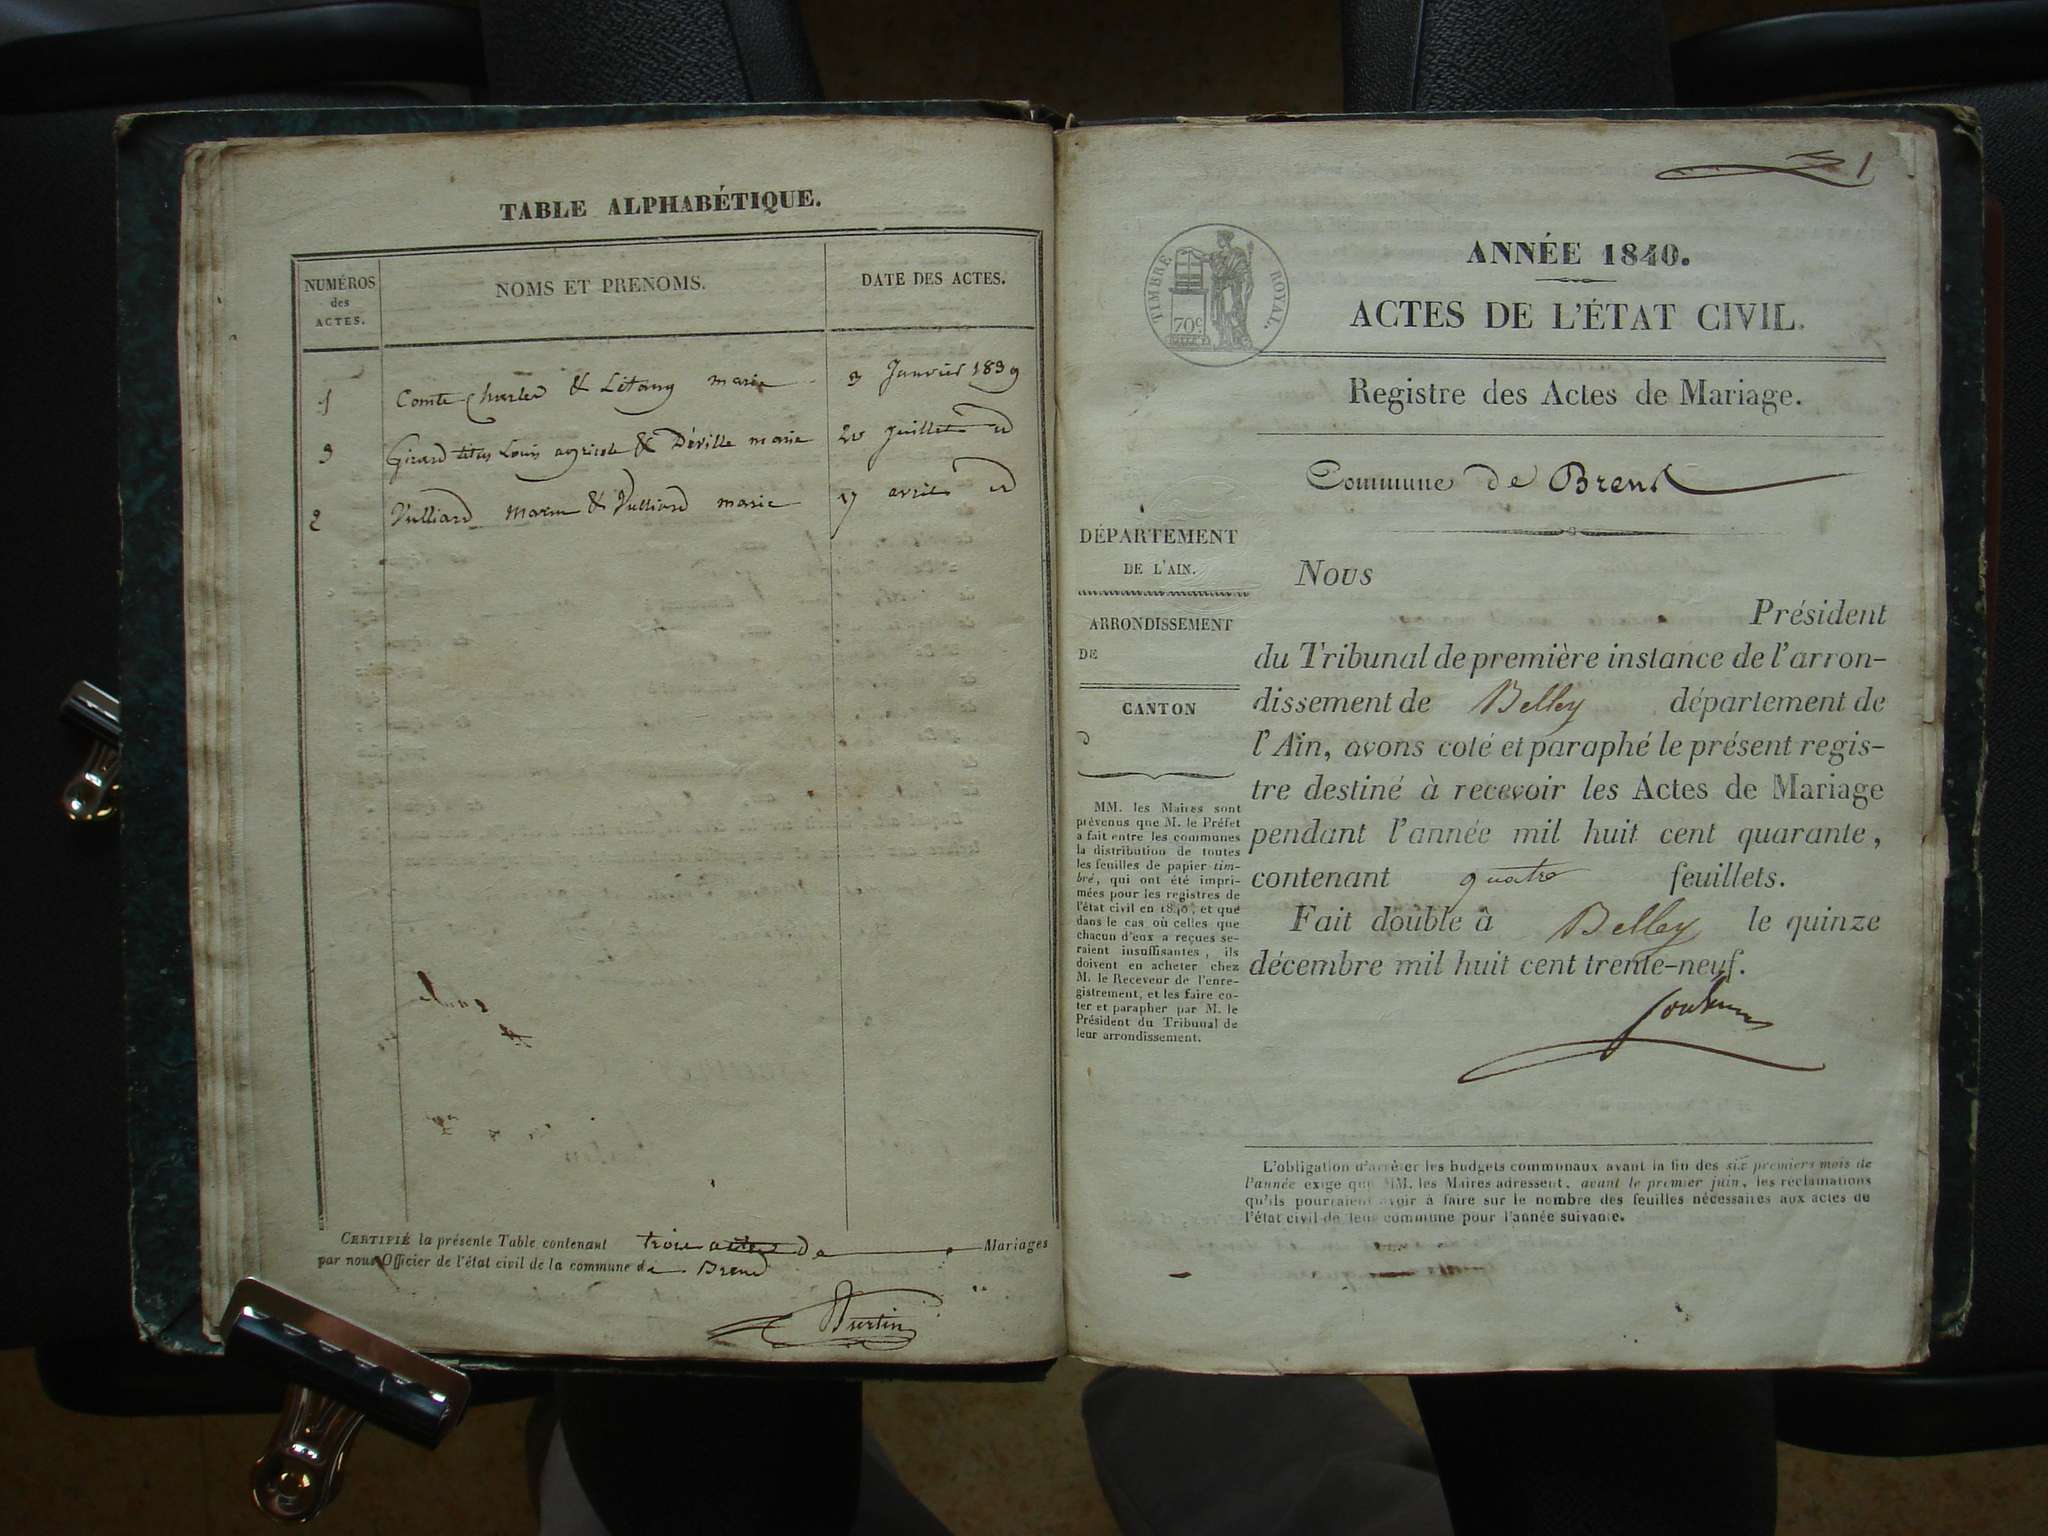 TABLE ALPHABÉTIQUE.
NUMÉROS
des
ACTES.
NOMS ET PRENOMS.
DATE DES ACTES.
1 Comte Charles & Litany marie 3 Janvier 1839
3 Girard titus Louis agricole & Déville marie Juillet id
2 Vulliard & Vulliard marie 17 avril id
CERTIFIÉ la présente Table contenant trois actes de Mariages
par nous Officier de l'état civil de la commune de Brens
Burtin
1
TIMBRE ROYAL.
70c
ANNÉE 1840.
ACTES DE L'ÉTAT CIVIL.
Registre des Actes de Mariage.
Commune de Brens
DÉPARTEMENT
DE L'AIN.
ARRONDISSEMENT
DE
CANTON
D
MM. les Maires sont
prévenus que M. le Préfet
a fait entre les communes
la distribution de toutes
les feuilles de papier tim-
bré, qui ont été impri-
mées pour les registres de
l'état civil en 1840, et que
dans le cas où celles que
chacun d'eux a reçues se-
raient insuffisantes, ils
doivent en acheter chez
M. le Receveur de l'enre-
gistrement, et les faire co-
ter et parapher par M. le
Président du Tribunal de
leur arrondissement.
Nous
Président
du Tribunal de première instance de l'arron-
dissement de Belley département de
l'Ain, avons coté et paraphé le présent regis-
tre destiné à recevoir les Actes de Mariage
pendant l'année mil huit cent quarante,
contenant quatre feuillets.
Fait double à Belley le quinze
décembre mil huit cent trente-neuf.
L'obligation d'arrêter les budgets communaux avant la fin des six premiers mois de
l'année exige que MM. les Maires adressent, avant le premier juin, les réclamations
qu'ils pourraient avoir à faire sur le nombre des feuilles nécessaires aux actes de
l'état civil de leur commune pour l'année suivante.